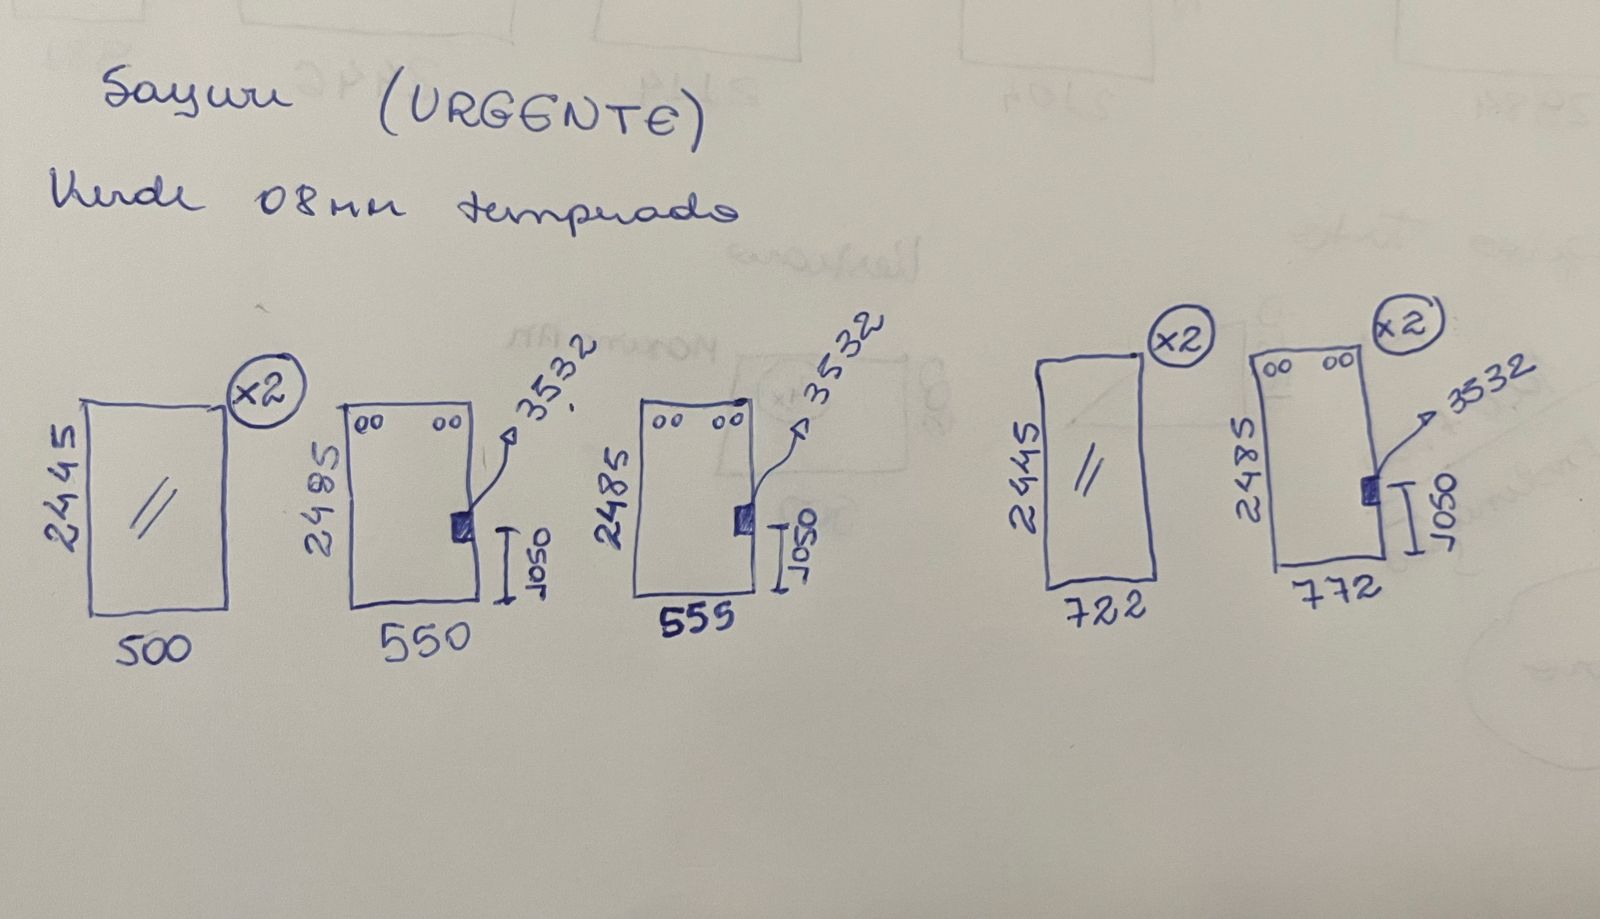 Sayuri (URGENTE)
Verde 08mm temperado
x2
2445
500
3532
2485
1050
550
3532
2485
1050
555
x2
2445
722
x2
3532
2485
1050
772